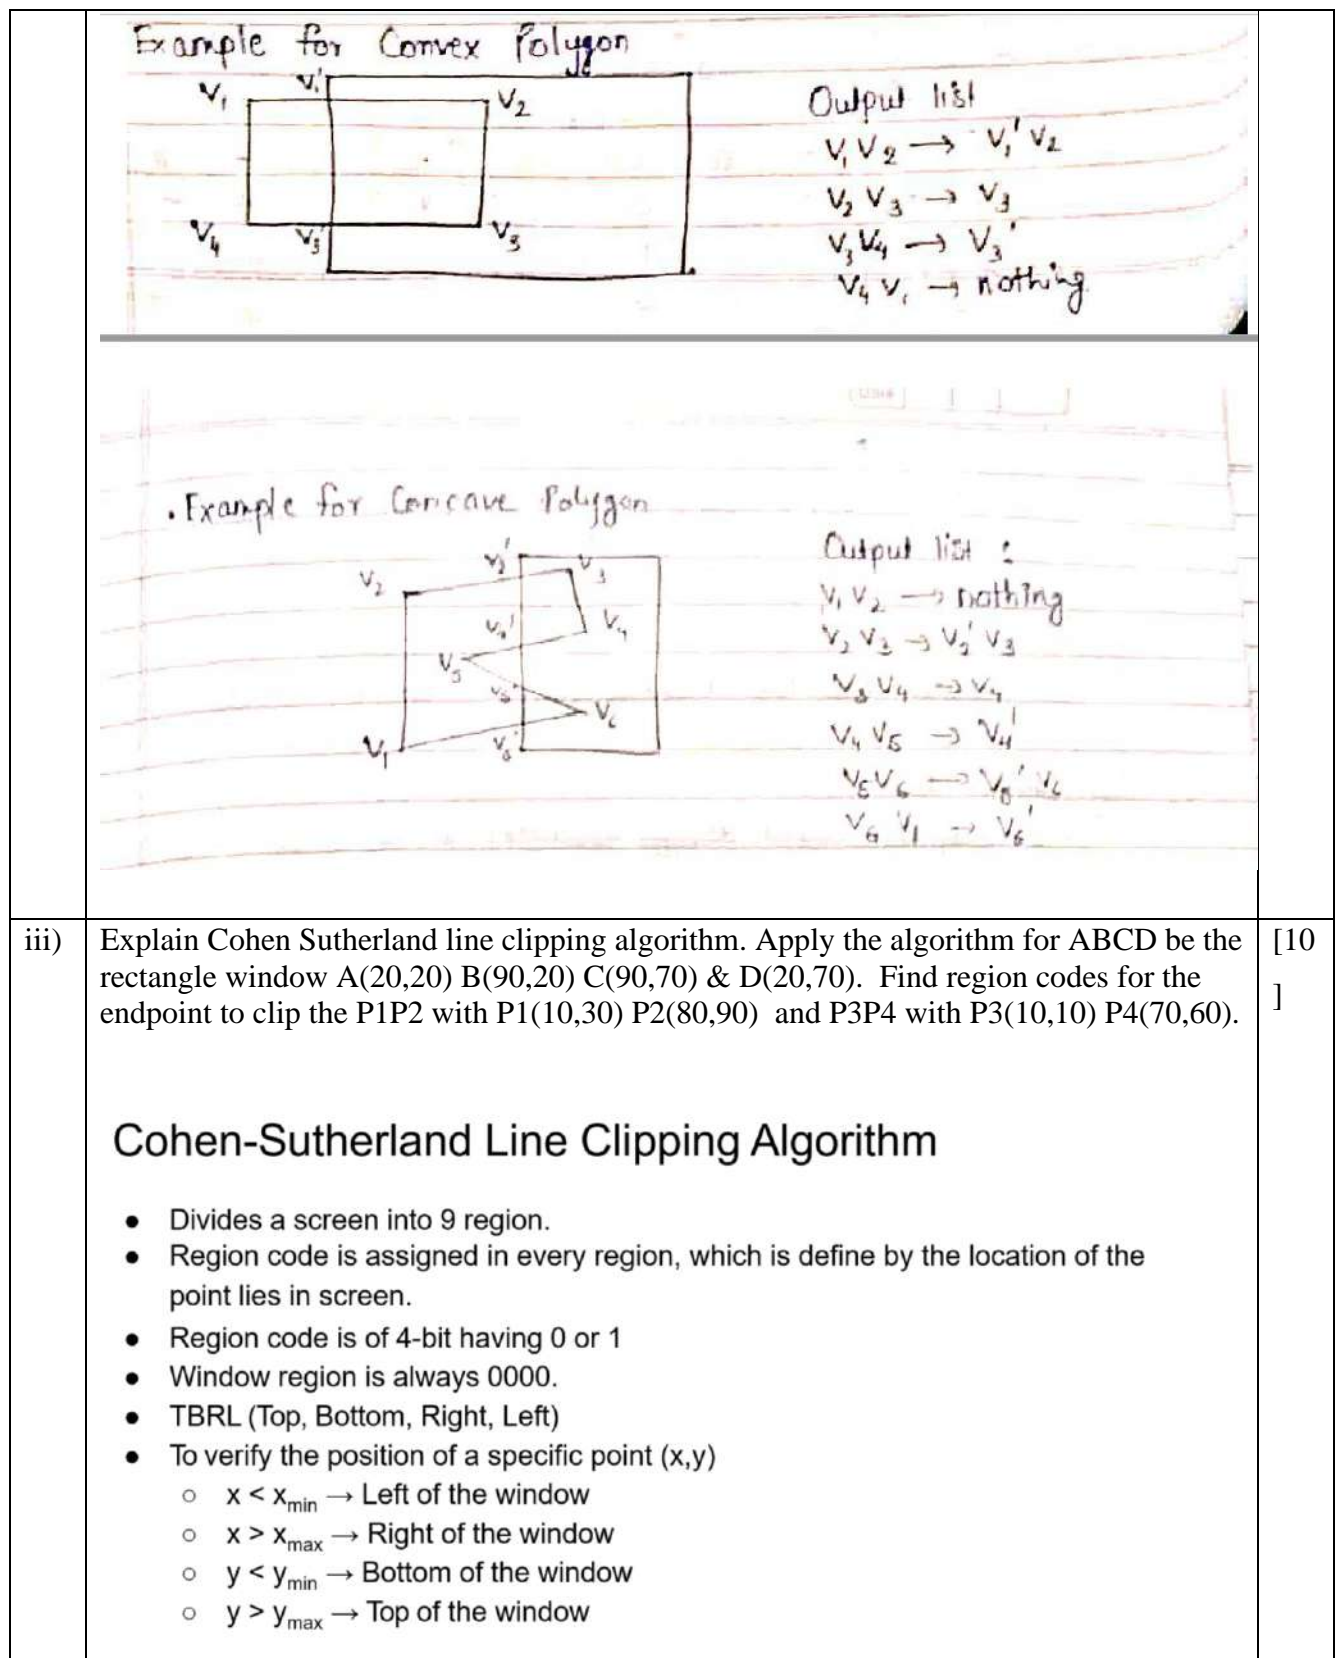 Example for Convex Polygon
V₁ V₁' V₂
V₄ V₃' V₃
Output list
V₁ V₂ → V₁' V₂
V₂ V₃ → V₃
V₃ V₄ → V₃'
V₄ V₁ → nothing
• Example for Concave Polygon
V₂ V₂' V₃
V₄' V₄
V₅
V₅' V₆
V₁ V₆'
Output list :
V₁ V₂ → nothing
V₂ V₃ → V₂' V₃
V₃ V₄ → V₄
V₄ V₅ → V₄'
V₅ V₆ → V₅' V₆
V₆ V₁ → V₆'
iii) Explain Cohen Sutherland line clipping algorithm. Apply the algorithm for ABCD be the [10
rectangle window A(20,20) B(90,20) C(90,70) & D(20,70). Find region codes for the
endpoint to clip the P1P2 with P1(10,30) P2(80,90) and P3P4 with P3(10,10) P4(70,60). ]
Cohen-Sutherland Line Clipping Algorithm
● Divides a screen into 9 region.
● Region code is assigned in every region, which is define by the location of the
point lies in screen.
● Region code is of 4-bit having 0 or 1
● Window region is always 0000.
● TBRL (Top, Bottom, Right, Left)
● To verify the position of a specific point (x,y)
○ x < xmin → Left of the window
○ x > xmax → Right of the window
○ y < ymin → Bottom of the window
○ y > ymax → Top of the window